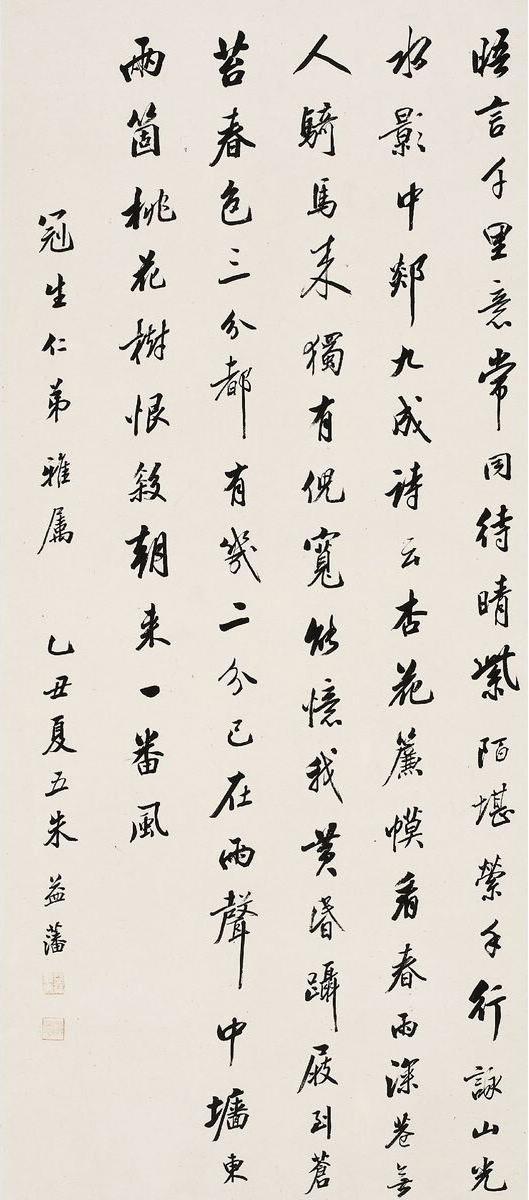 晤言千里意常同待晴紫陌堪縈手行詠山光
水影中郯九成詩云杏花簾幙看春雨深巷無
人騎馬來獨有倪寬能憶我黄昏躡屐到蒼
苔春色三分都有幾二分已在雨聲中墻東
兩箇桃花樹恨殺朝来一番風
冠生仁弟雅属 乙丑夏五朱益藩